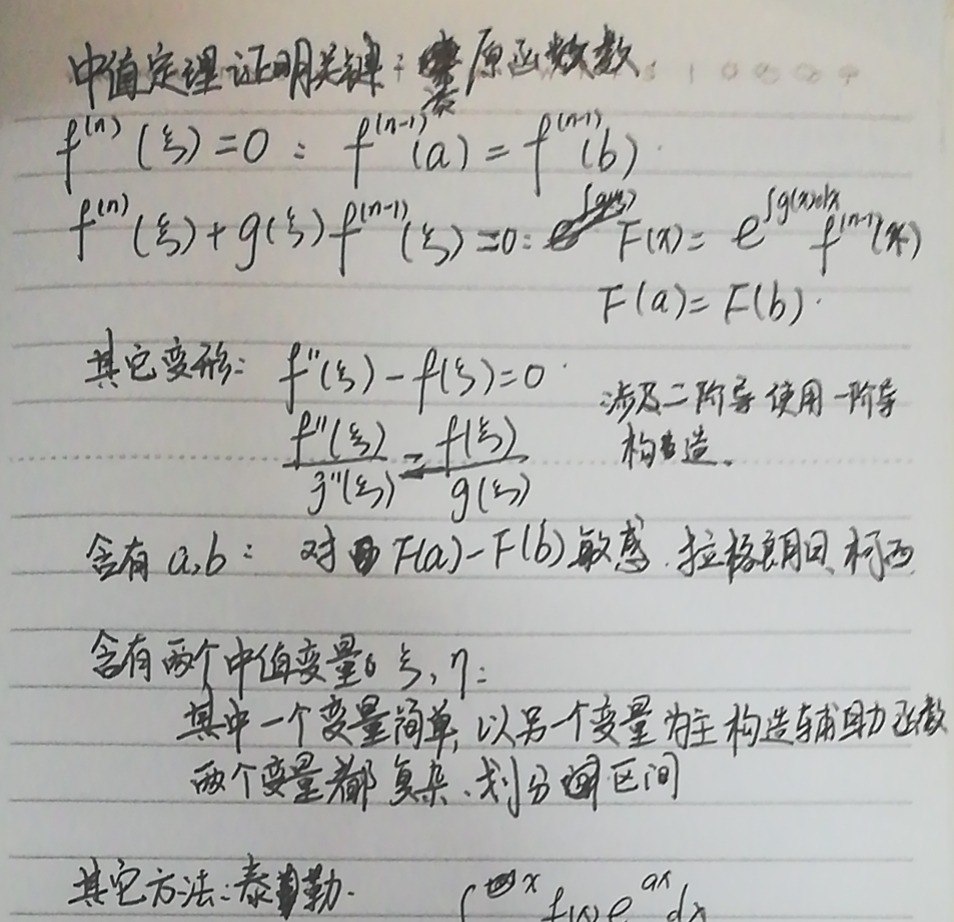 中值定理证明关键：原函数数
f⁽ⁿ⁾(ξ)=0：f⁽ⁿ⁻¹⁾(a)=f⁽ⁿ⁻¹⁾(b)
f⁽ⁿ⁾(ξ)+g(ξ)f⁽ⁿ⁻¹⁾(ξ)=0：F(x)=e^{∫g(x)dx}f⁽ⁿ⁻¹⁾(x)
F(a)=F(b).
其它变形：f''(ξ)-f(ξ)=0
涉及二阶导使用一阶导
f''(ξ)/g''(ξ)=f(ξ)/g(ξ)
构造。
含有a,b：对F(a)-F(b)敏感.拉格朗日,柯西
含有两个中值变量ξ,η：
其中一个变量简单,以另一个变量为主构造辅助函数
两个变量都复杂.划分区间
其它方法：泰勒.